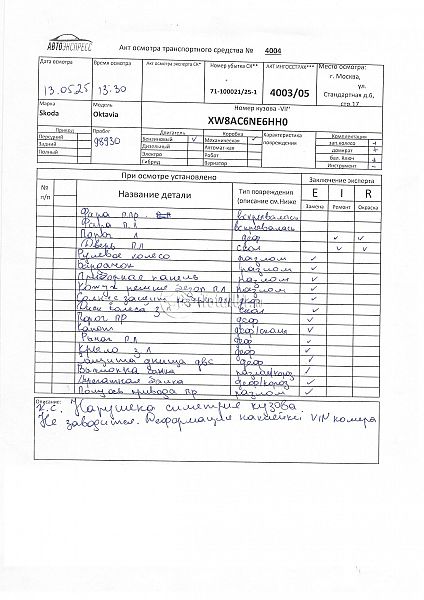 АВТОЭКСПРЕСС
Акт осмотра транспортного средства № 4004
Дата осмотра
13.05.25
Время осмотра
13.30
Акт осмотра эксперта СК*
Номер убытка СК**
71-100021/25-1
АКТ ИНГОССТРАХ***
4003/05
Место осмотра:
г. Москва,
ул.
Стандартная д.6,
стр 17
Номер кузова "VII"
XW8AC6NE6HH0
Марка
Skoda
Модель
Oktavia
Привод
Передний
Задний
Полный
Пробег
96930
Двигатель
Бензиновый √
Дизельный
Электро
Гибрид
Коробка
Механическая √
Автоматная
Робот
Вариатор
Характеристика повреждения
Комплектация
зап.колесо +
домкрат +
бал. Ключ +
Инструмент -
№ п/п
При осмотре установлено
Заключение эксперта
Название детали
Тип повреждения
(описание см.Ниже
E I R
Замена Ремонт Окраска
Фара п.пр. вскрывалась
Фара п.л вскрывалась
Порог л деф √ √
Дверь п.л скол √ √
Рулевое колесо разлом √
разлом √
Приборная панель разлом √
Кожух п.л разлом √
деф √
Диск колеса з.л скол √
Порог пр деф √
Капот деф/скол √
п.л деф √
Крыло з.л деф √
Защита днища двс деф √
√
балка деф/короз √
привода пр разлом √
Описание:
К.с. Нарушена симетрия кузова.
Не заводится. Деформация наклейки VIN номера